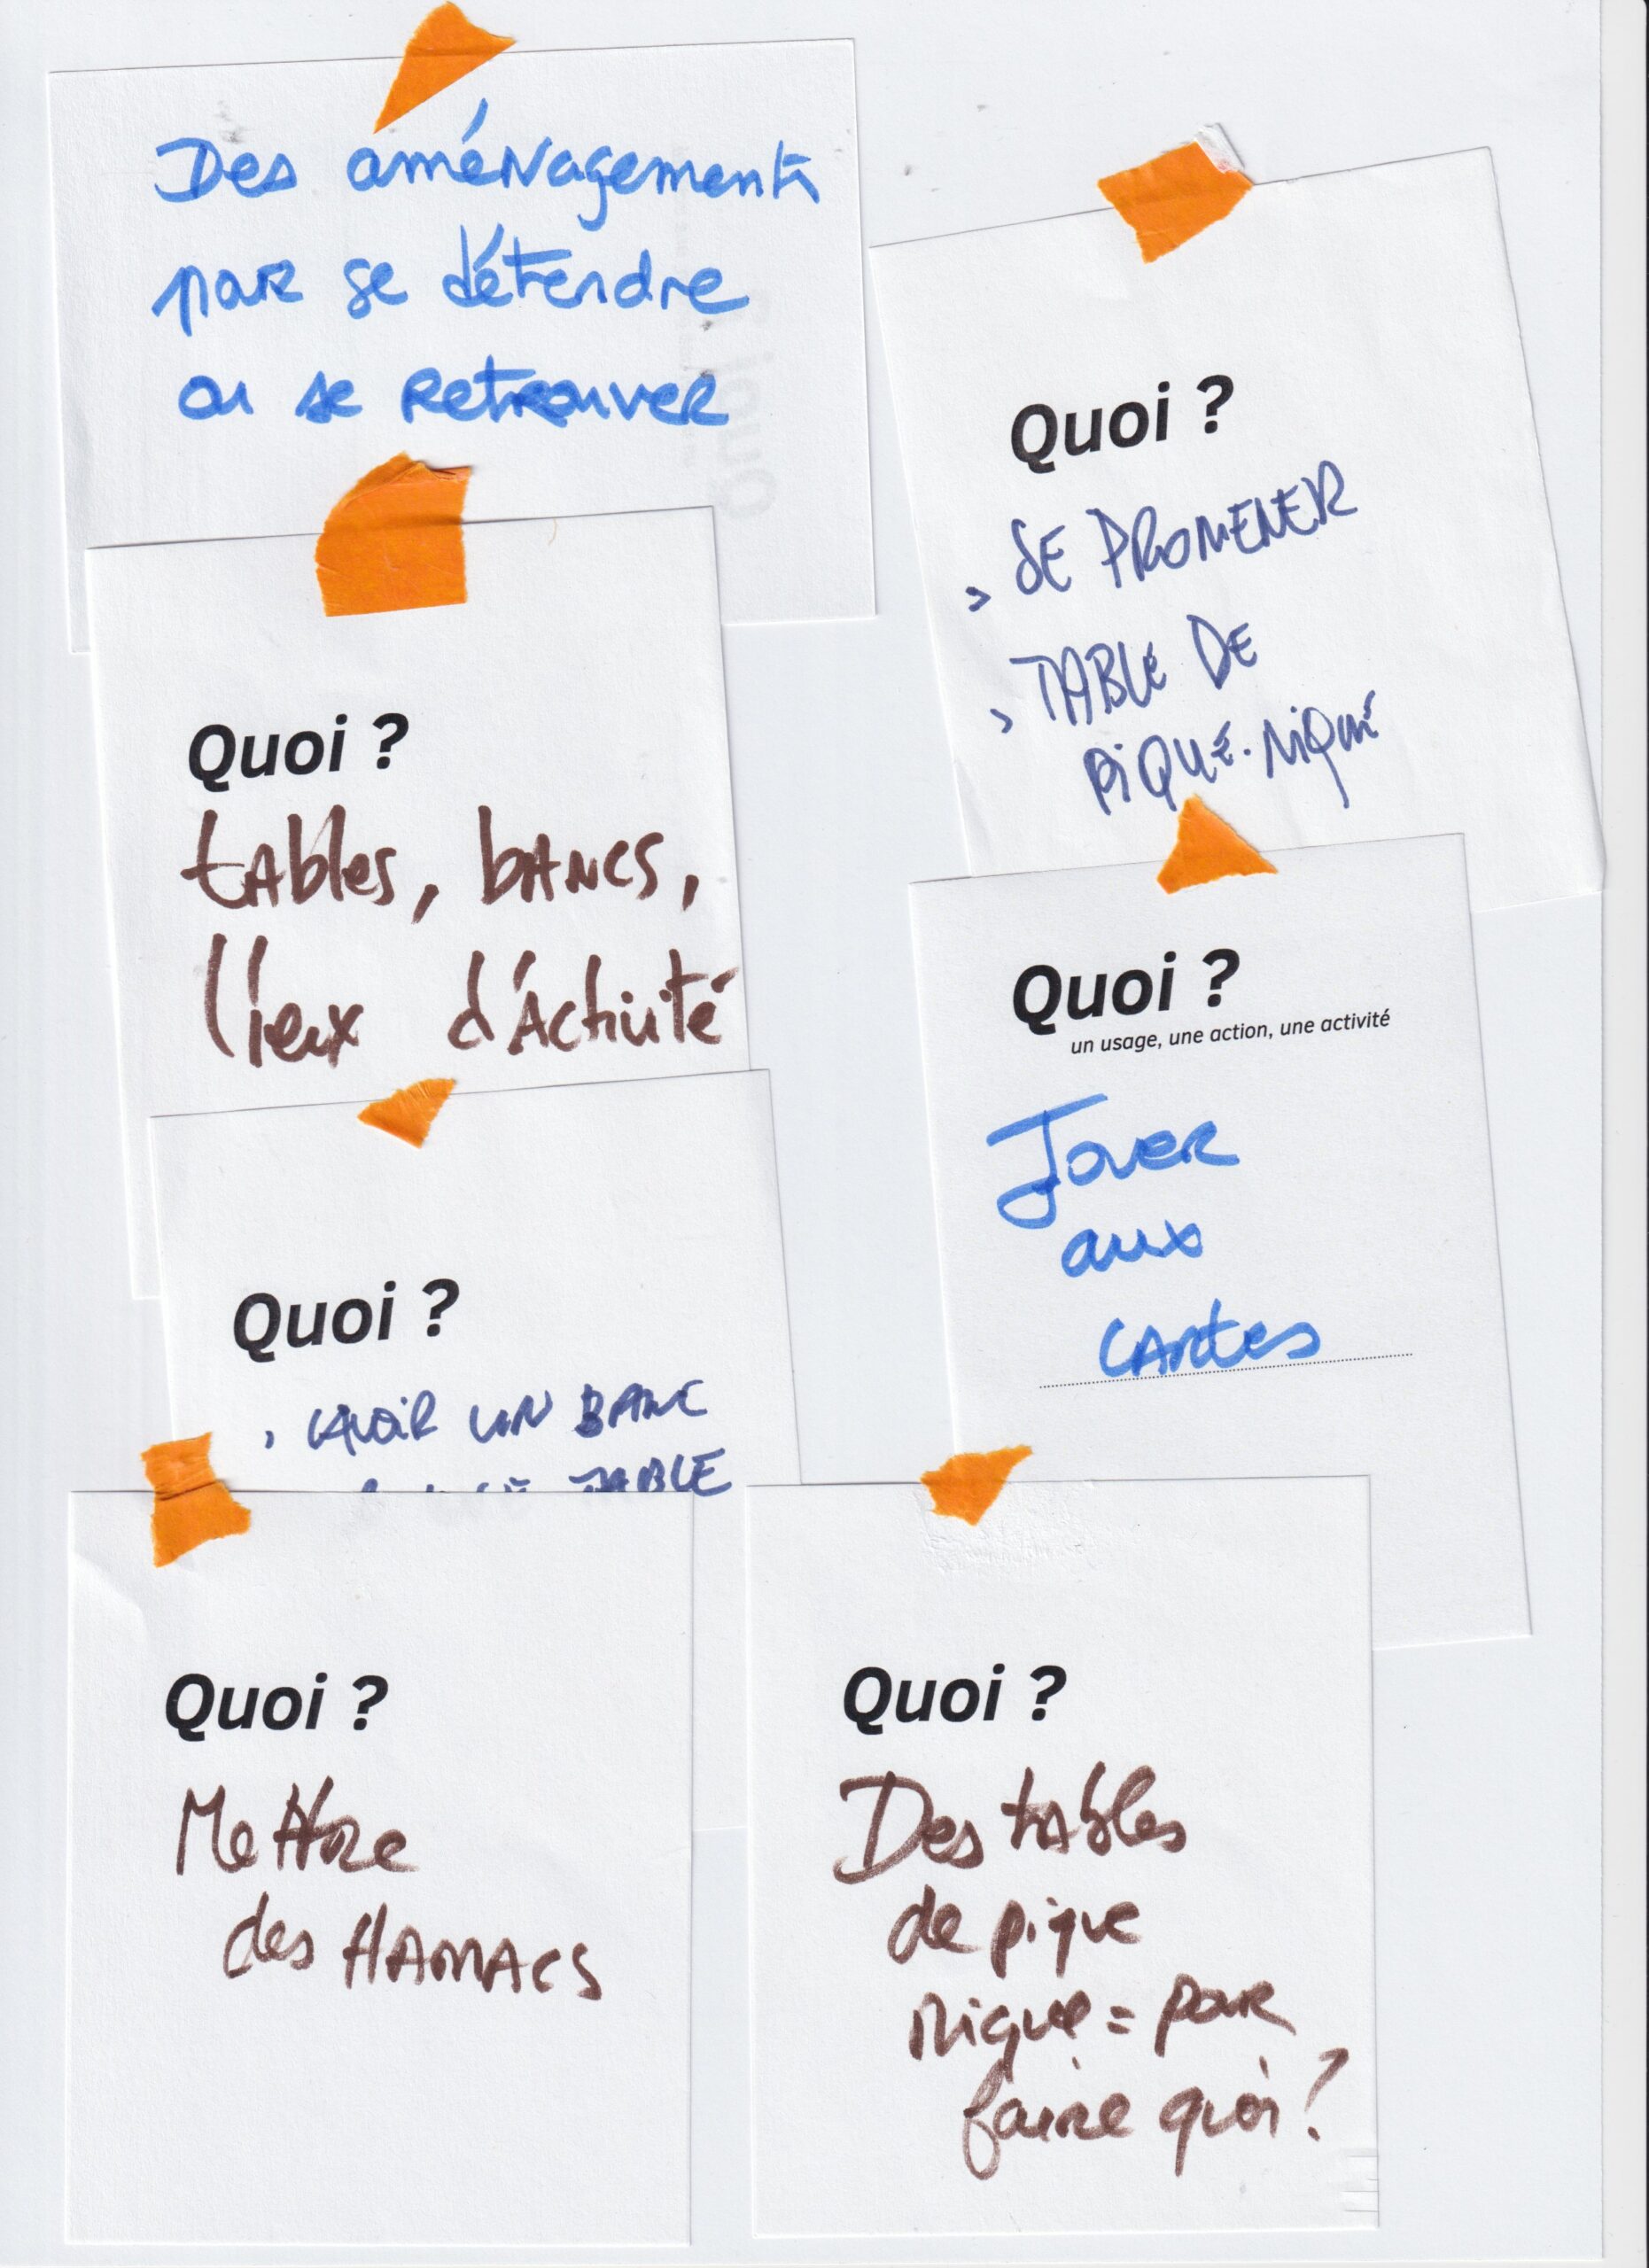 Des aménagements
pour se détendre
ou se retrouver
Quoi ?
tables, bancs,
lieux d'activité
Quoi ?
> AVOIR UN BANC
TABLE
Quoi ?
Mettre
des HAMACS
Quoi ?
> SE PROMENER
> TABLE DE
PIQUE-NIQUE
Quoi ?
un usage, une action, une activité
Jouer
aux
cartes
Quoi ?
Des tables
de pique
nique = pour
faire quoi ?